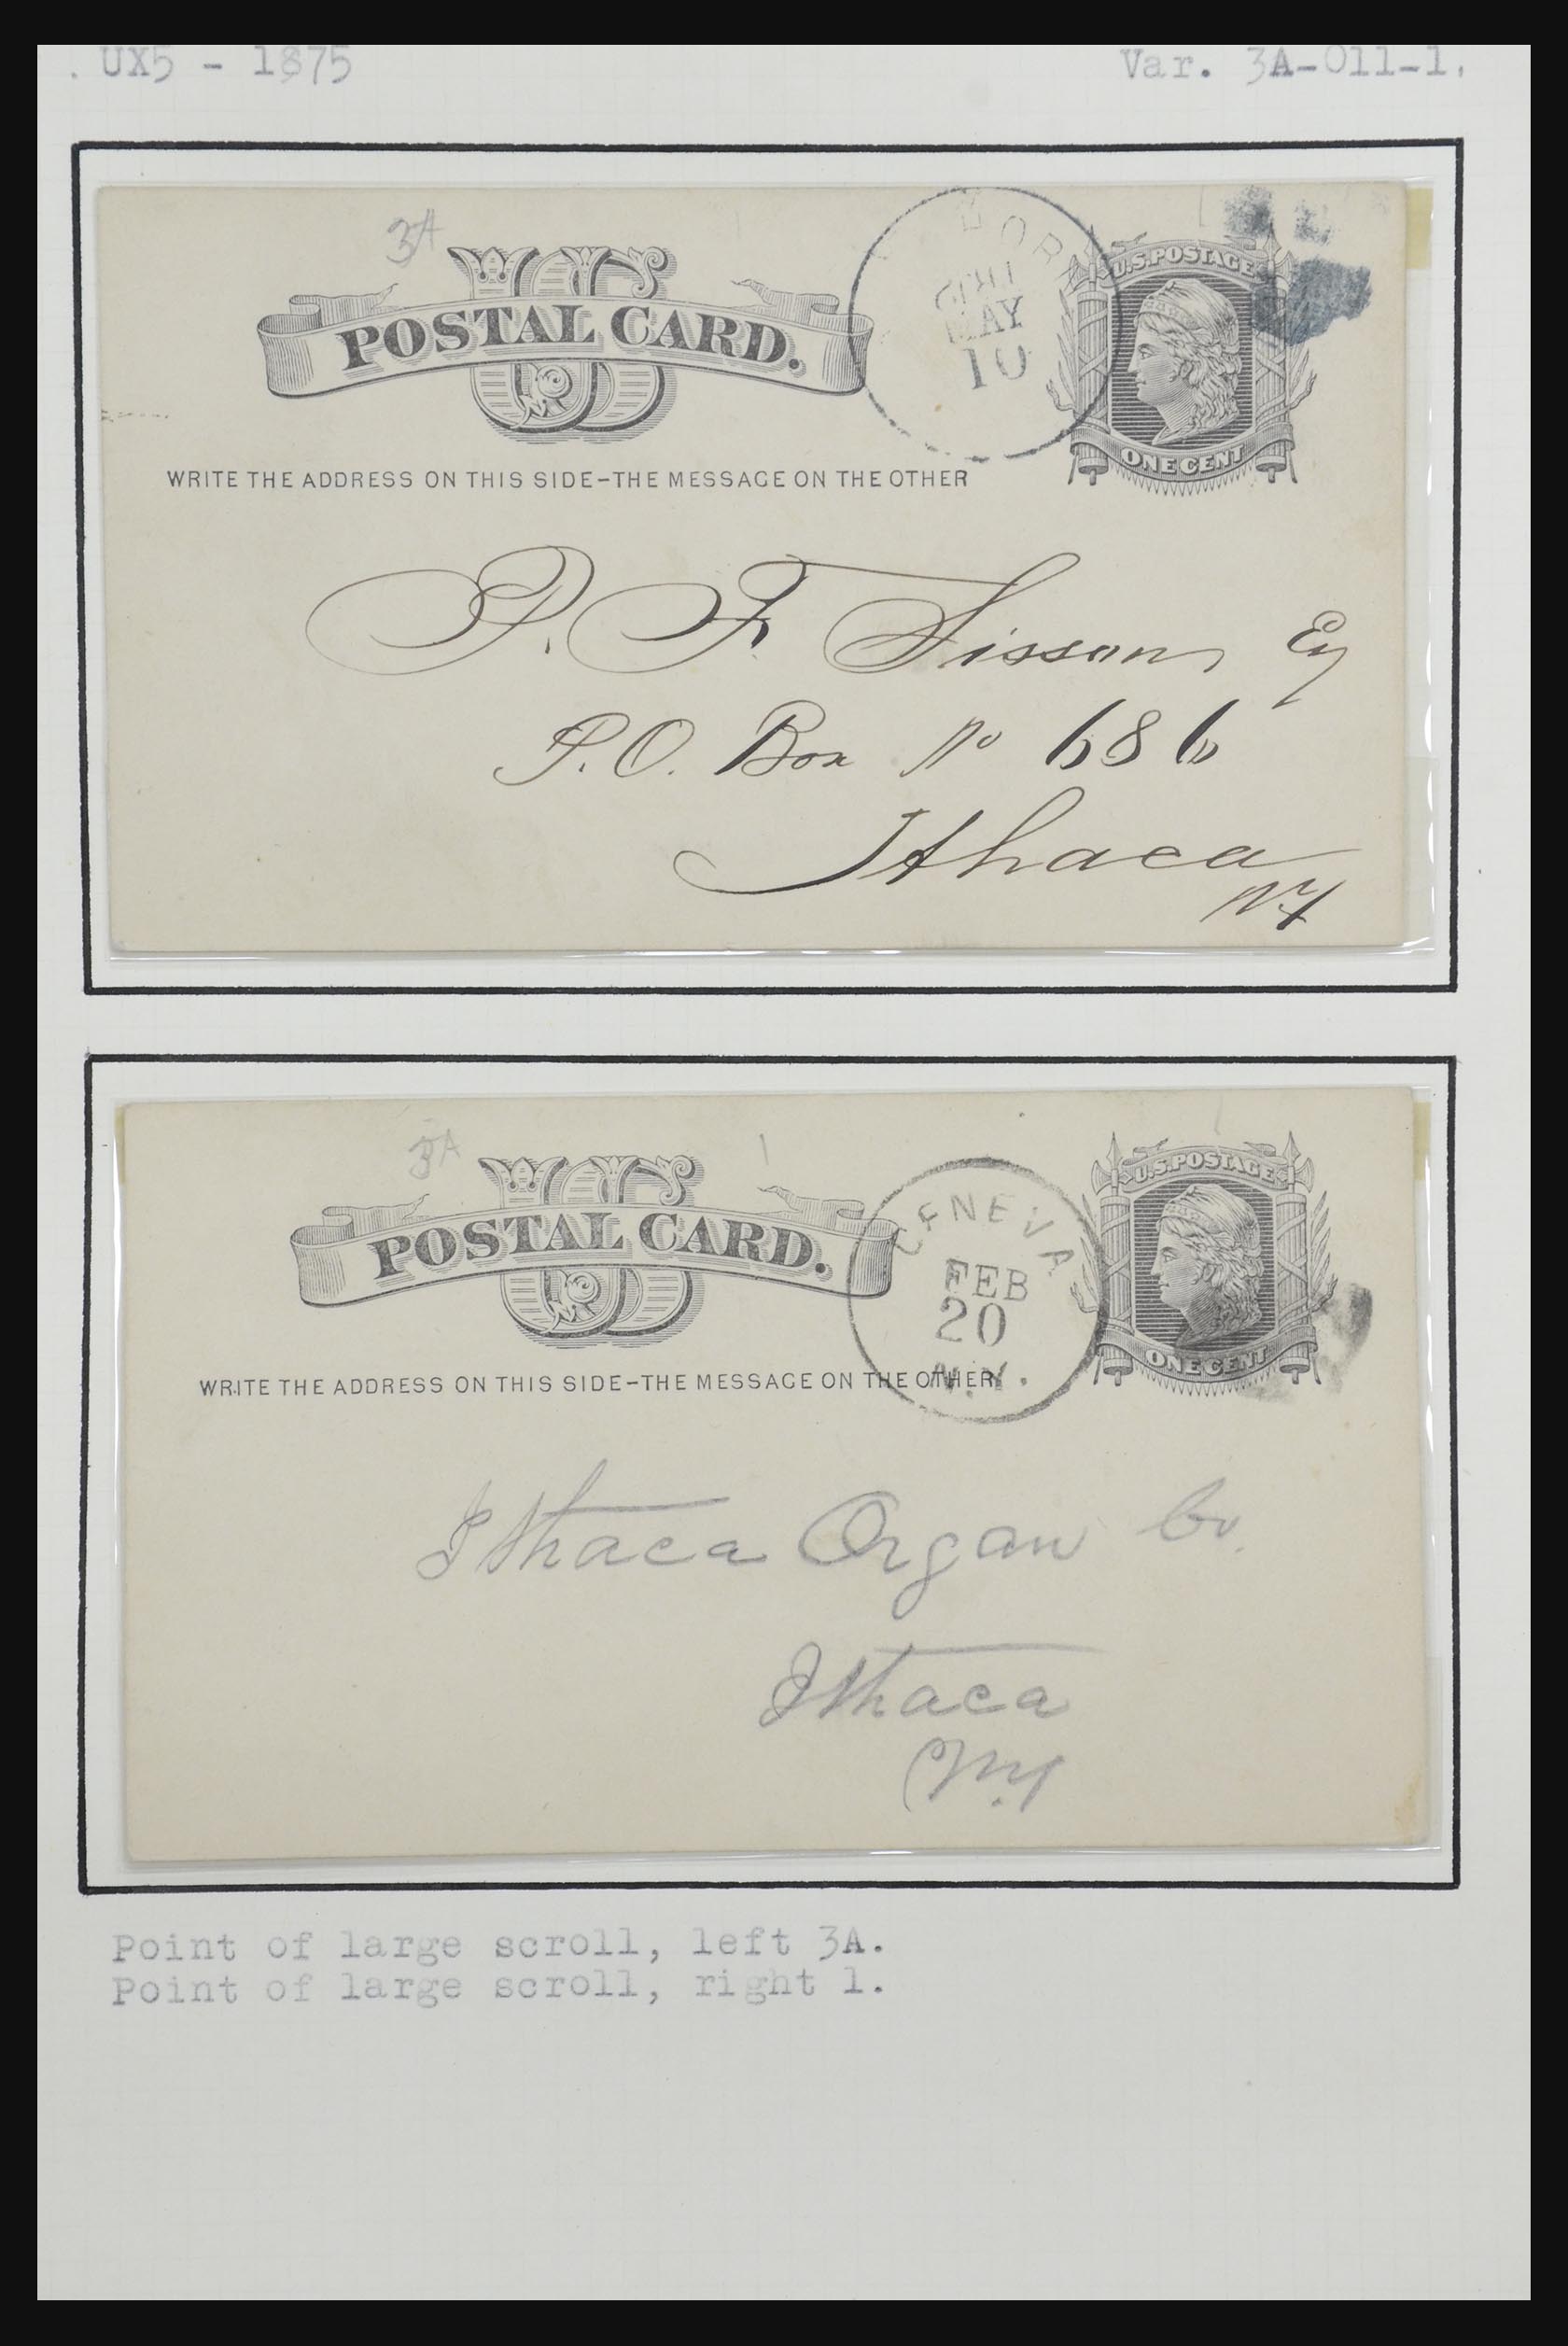 . UX5 - 1875
Var. 3A-011-1.
3A
US
POSTAL CARD.
MAY
10
U.S. POSTAGE
ONE CENT
WRITE THE ADDRESS ON THIS SIDE-THE MESSAGE ON THE OTHER
P. F. Sisson, Esq
P.O. Box No 686
Ithaca
NY
3A
1
US
POSTAL CARD.
GENEVA
FEB
20
N.Y.
U.S. POSTAGE
ONE CENT
WRITE THE ADDRESS ON THIS SIDE-THE MESSAGE ON THE OTHER
Ithaca Organ Co.
Ithaca
N.Y
Point of large scroll, left 3A.
Point of large scroll, right 1.